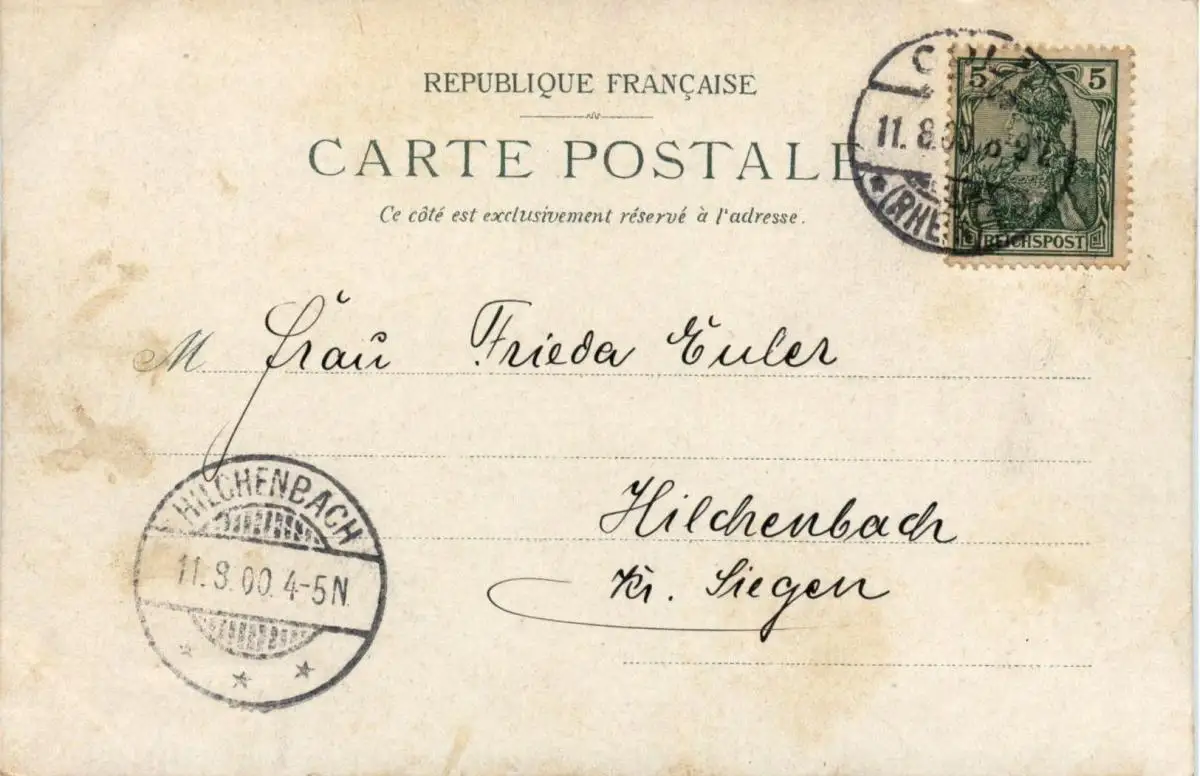 REPUBLIQUE FRANÇAISE
CARTE POSTALE
Ce côté est exclusivement réservé à l'adresse.
5 5
REICHSPOST
11. 8.00.
(RHEIN)
M. Frau Frieda Euler
Hilchenbach
Kr. Siegen
HILCHENBACH
11.8.00. 4-5N